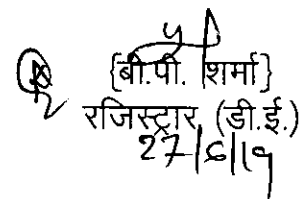 {बी.पी. शर्मा}
रजिस्ट्रार (डी.ई.)
27/6/19